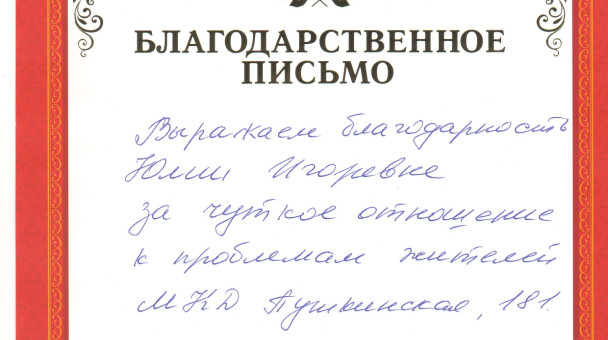 БЛАГОДАРСТВЕННОЕ
ПИСЬМО
Выражаем благодарность
Юлии Игоревне
за чуткое отношение
к проблемам жителей
МКД Пушкинская, 181.